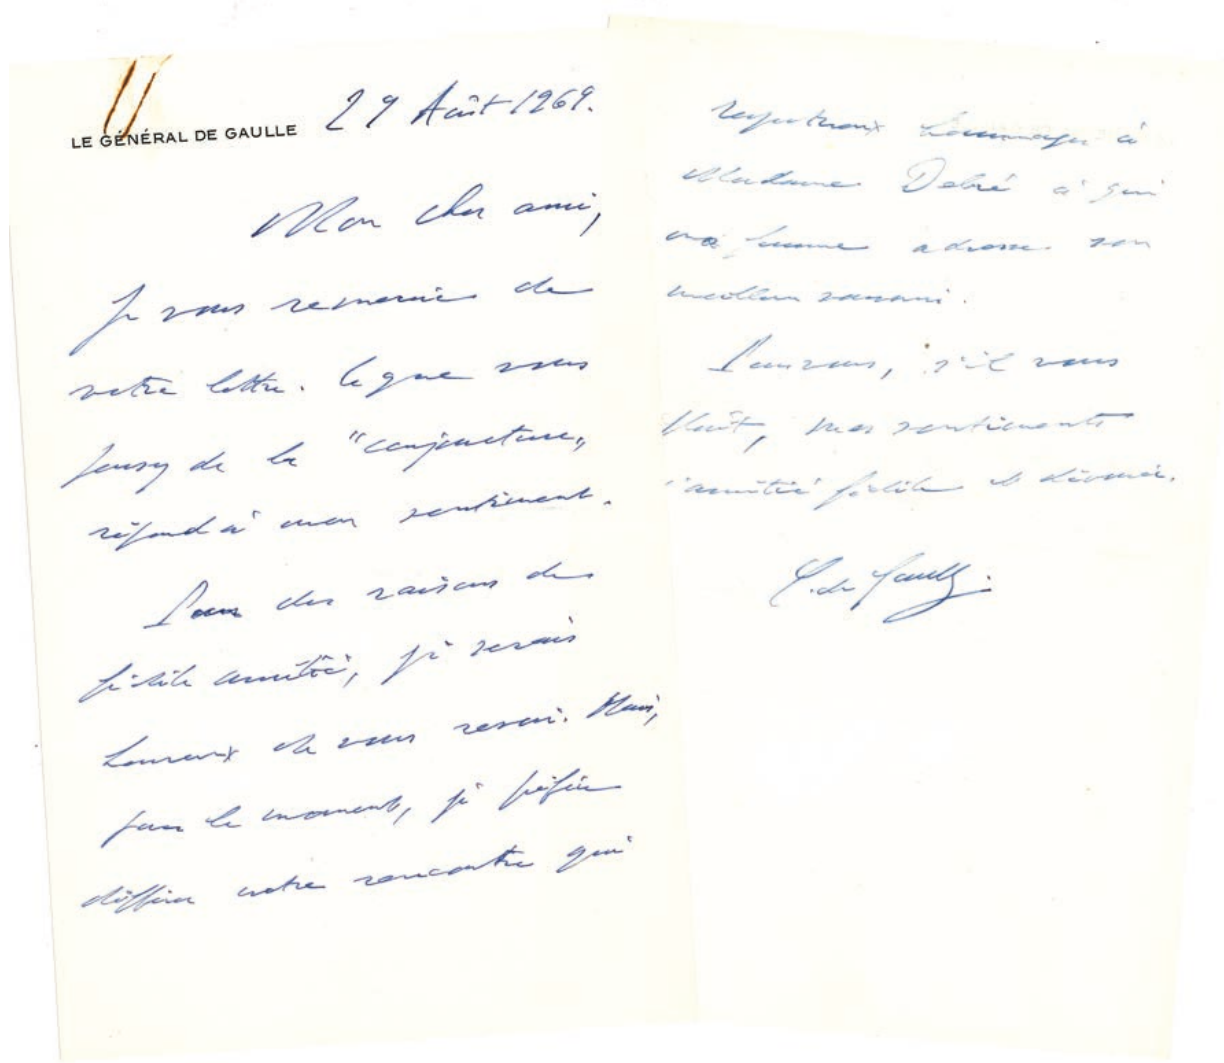 LE GÉNÉRAL DE GAULLE
29 Août 1969.
Mon cher ami,
Je vous remercie de
votre lettre. Ce que vous
pensez de la "conjoncture"
répond à mon sentiment.
Pour des raisons de
fidèle amitié, je serais
heureux de vous revoir. Mais,
pour le moment, je préfère
différer notre rencontre qui
respectueux hommages à
Madame Debré à qui
ma femme adresse son
meilleur souvenir.
Pour vous, s'il vous
plaît, mes sentiments
d'amitié fidèle et dévouée.
C. de Gaulle.